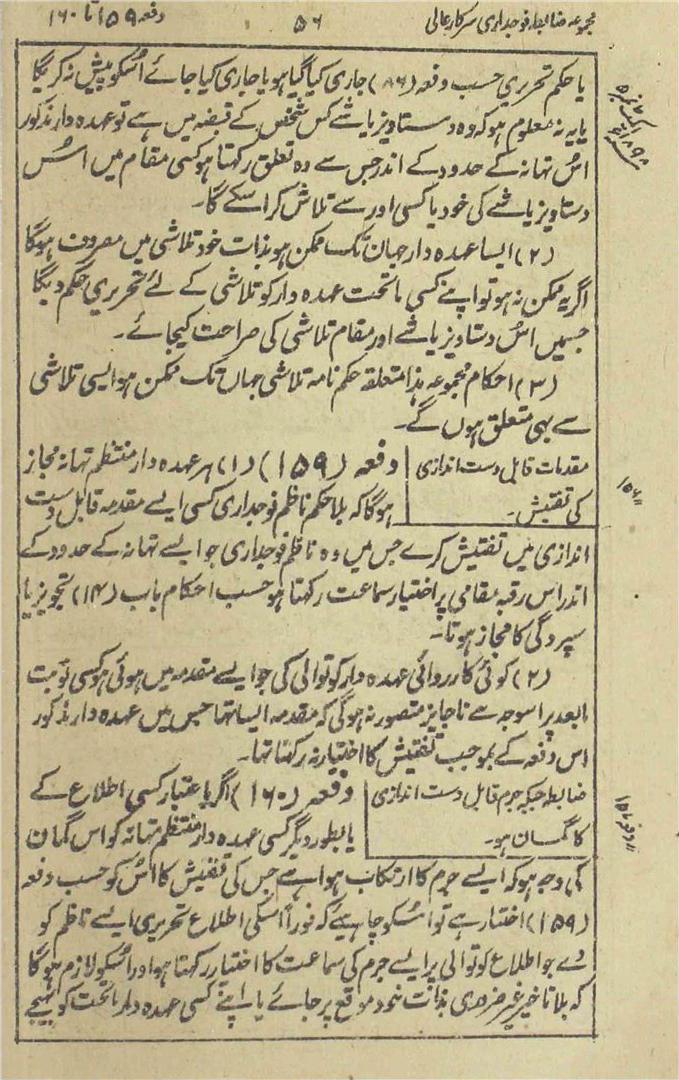 مجموعہ ضابطہ فوجداری سرکار عالی
۵۶
دفعہ ۱۵۹ تا ۱۶۰
یا حکم تحریری حسب دفعہ (۸۶) جاری کیا گیا ہو یا جاری کیا جائے اُسکو پیش نہ کریگا
یا یہ نہ معلوم ہو کہ وہ دستاویز یا شے کس شخص کے قبضہ میں ہے تو عہدہ دار مذکور
اُس تہانہ کے حدود کے اندر جس سے وہ تعلق رکہتا ہو کسی مقام میں اُس
دستاویز یا شے کی خود یا کسی اور سے تلاش کرا سکے گا۔
(۲) ایسا عہدہ دار جہان تک ممکن ہو بذات خود تلاشی میں مصروف ہوگا
اگر یہ ممکن نہ ہو تو اپنے کسی ماتحت عہدہ دار کو تلاشی کے لئے تحریری حکم دیگا
جسمیں اُس دستاویز یا شے اور مقام تلاشی کی صراحت کیجائے۔
(۳) احکام مجموعہ ہذا متعلقہ حکم نامہ تلاشی جہاں تک ممکن ہو ایسی تلاشی
سے بہی متعلق ہوں گے۔
مقدمات قابل دست اندازی
کی تفتیش۔
دفعہ (۱۵۹) (۱) ہر عہدہ دار منتظم تہانہ مجاز
ہوگا کہ بلا حکم ناظم فوجداری کسی ایسے مقدمہ قابل دست
اندازی میں تفتیش کرے جس میں وہ ناظم فوجداری جو ایسے تہانہ کے حدود کے
اندر اس رقبہ مقامی پر اختیار سماعت رکہتا ہو حسب احکام باب (۱۴) تجویز یا
سپردگی کا مجاز ہوتا۔
(۲) کوئی کارروائی عہدہ دار کوتوالی کی جو ایسے مقدمہ میں ہوئی ہو کسی نوبت
مابعد پر اسوجہ سے ناجایز متصور نہ ہوگی کہ مقدمہ ایسا تہا جس میں عہدہ دار مذکور
اس دفعہ کے بموجب تفتیش کا اختیار نہ رکہتا تہا۔
ضابطہ جبکہ جرم قابل دست اندازی
کا گمان ہو۔
دفعہ (۱۶۰) اگر باعتبار کسی اطلاع کے
یا بطور دیگر کسی عہدہ دار منتظم تہانہ کو اس گمان
کی وجہ ہو کہ ایسے جرم کا ارتکاب ہوا ہے جس کی تفتیش کا اُس کو حسب دفعہ
(۱۵۹) اختیار ہے تو اُسکو چاہیئے کہ فوراً اسکی اطلاع تحریری ایسے ناظم کو
دے جو اطلاع کوتوالی پر ایسے جرم کی سماعت کا اختیار رکہتا ہو اور اُسکو لازم ہوگا
کہ بلا تاخیر غیر ضروری بذات خود موقع پر جائے یا اپنے کسی عہدہ دار ماتحت کو بہیجے